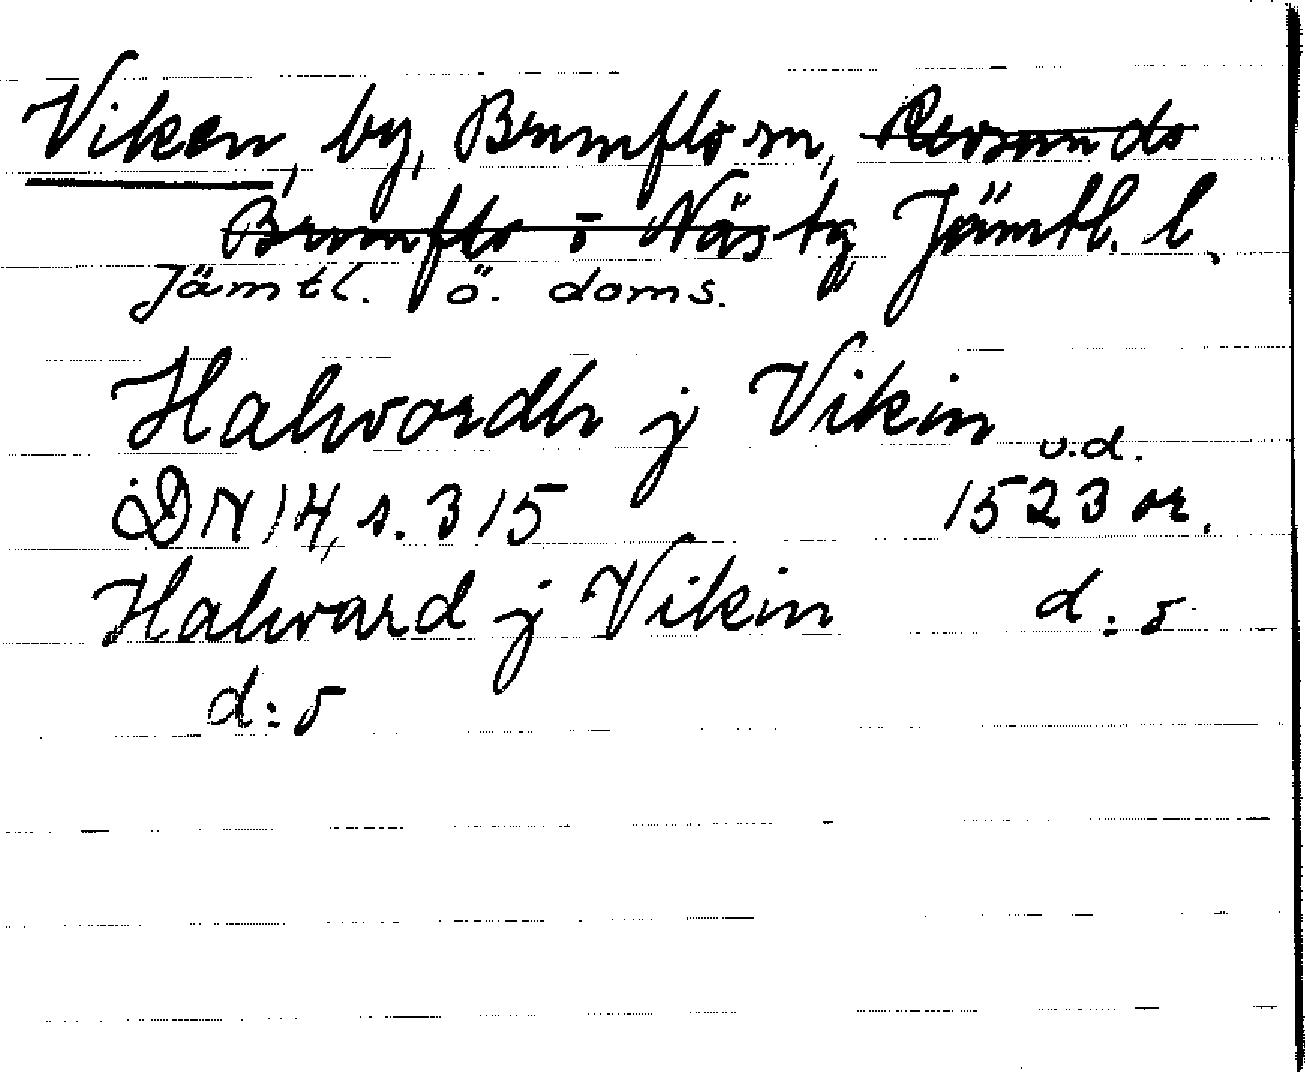 Viken, by, Brunflo sn, Revsunds
Brunflo o Näs tg Jämtl. l.
Jämtl. ö. doms.
Halwardh j Vikin u.d.
DN 14, s. 315 1523 or.
Halward j Vikin d:o
d:o